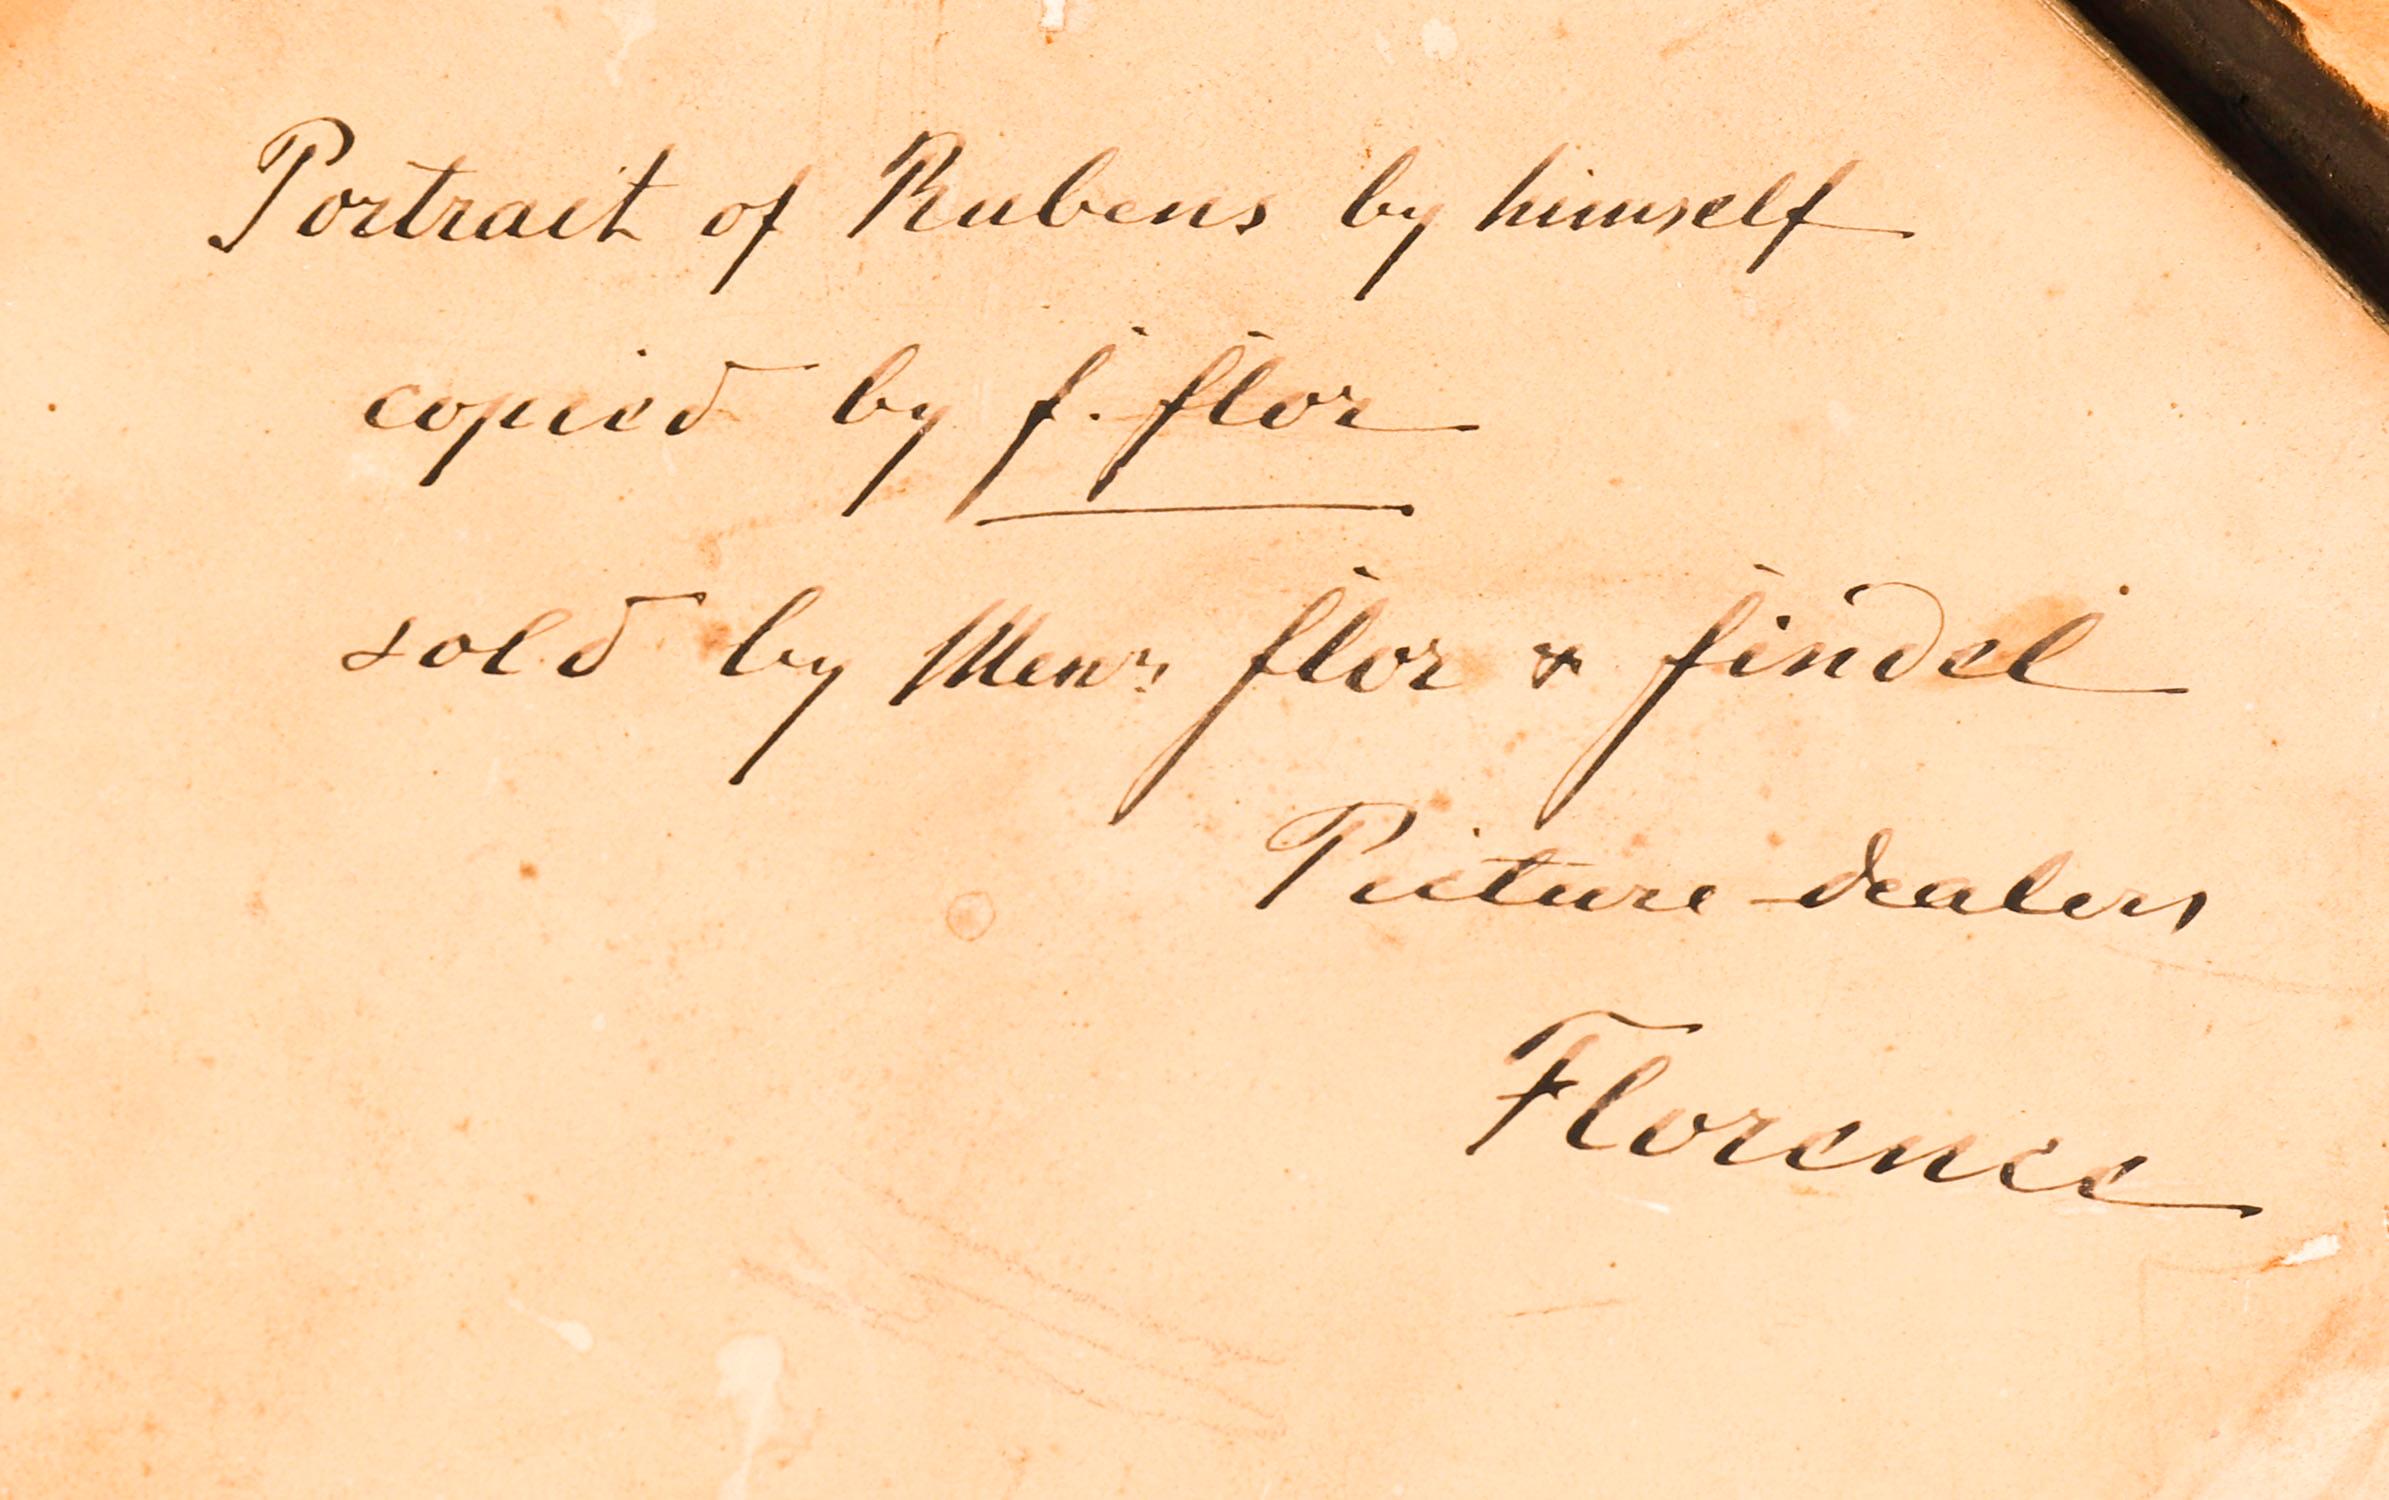 Portrait of Rubens by himself
copied by f. flor
sold by Mess.rs flor & findel
Picture-dealers
Florence